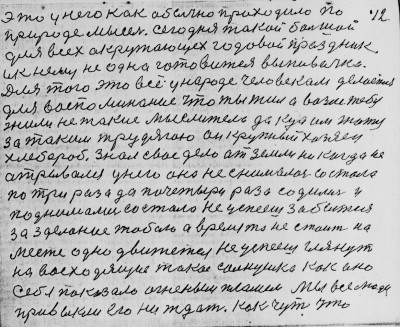 это у него как обычно приходило по 12
природе мысел. Сегодня такой большой
для всех окрутающех годовой праздник
и к нему не одна готовится выпивалка.
Для того это всё у народе человекам делается
для воспоминание что ты жил а возле тебя
жили не такие мыслитель да куда им
за таким трудягаю он крупный хозяен
хлебароб. Знал свае дело ат земли никагда не
атрывался у него оно не снималас состала
по три раза да по четыри раза садилис у
поднимали состало не успееш забытия
за зделание табою а время то не стаит на
месте одно двежется не успееш глянут
на васходящие такое солнушка как оно
себя паказало огненым пламем мы все люди
привыкли его ни ждат. Как чут что